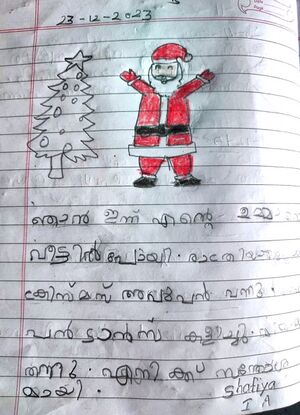 23-12-2023
ഞാൻ ഇന്ന് എന്റെ ഉമ്മ
വീട്ടിൽ പോയി. രാത്രിയി
ക്രിസ്മസ് അപ്പൂപൻ വന്നു.
പൻ ട്ടാൻസ് കളിച്ചു.
തന്നു. എനിക്ക് സന്തോശ
മായി.
Shafiya
I A